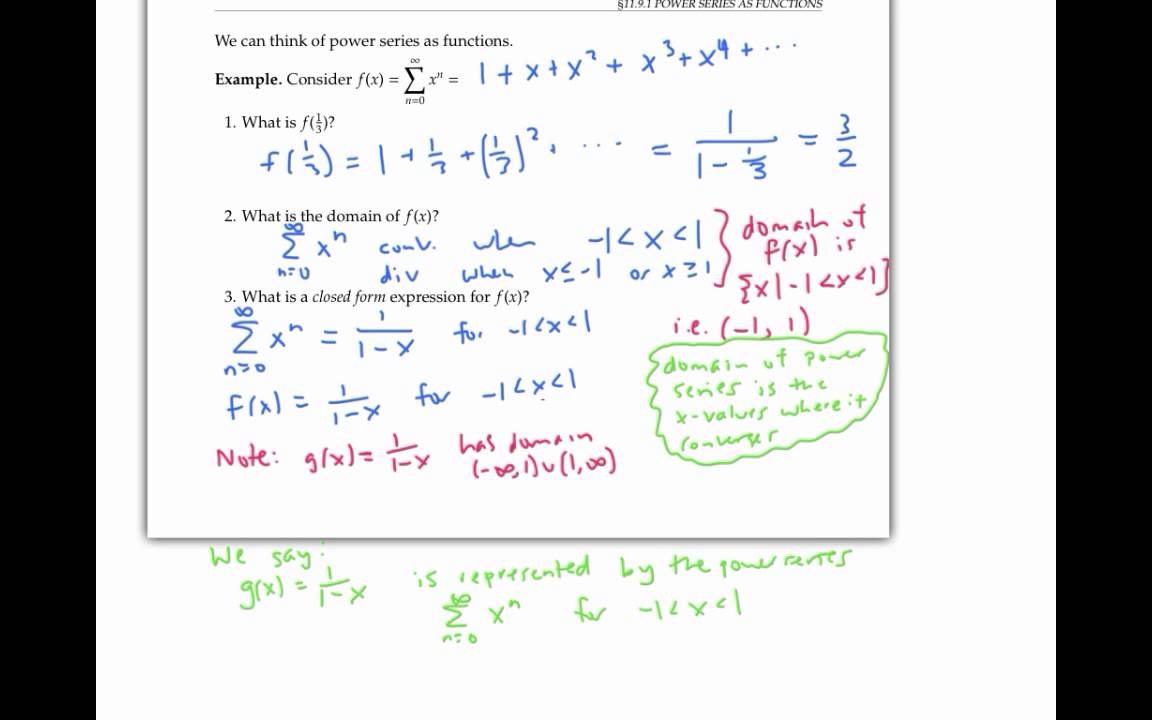 §11.9.1 POWER SERIES AS FUNCTIONS
We can think of power series as functions.
Example. Consider f(x) = ∑_{n=0}^{∞} xⁿ = 1 + x + x² + x³ + x⁴ + ⋯
1. What is f(1/3)?
f(1/3) = 1 + 1/3 + (1/3)² + ⋯ = 1/(1 − 1/3) = 3/2
2. What is the domain of f(x)?
∑_{n=0}^{∞} xⁿ conv. when -1 < x < 1
div when x ≤ -1 or x ≥ 1
} domain of
f(x) is
{x | -1 < x < 1}
i.e. (-1, 1)
3. What is a closed form expression for f(x)?
∑_{n=0}^{∞} xⁿ = 1/(1-x) for -1 < x < 1
f(x) = 1/(1-x) for -1 < x < 1
domain of power
series is the
x-values where it
converges
Note: g(x) = 1/(1-x) has domain
(-∞, 1) ∪ (1, ∞)
We say:
g(x) = 1/(1-x) is represented by the power series
∑_{n=0}^{∞} xⁿ for -1 < x < 1